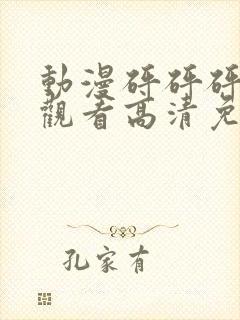 動漫砰砰砰
觀看高清免
孔家有